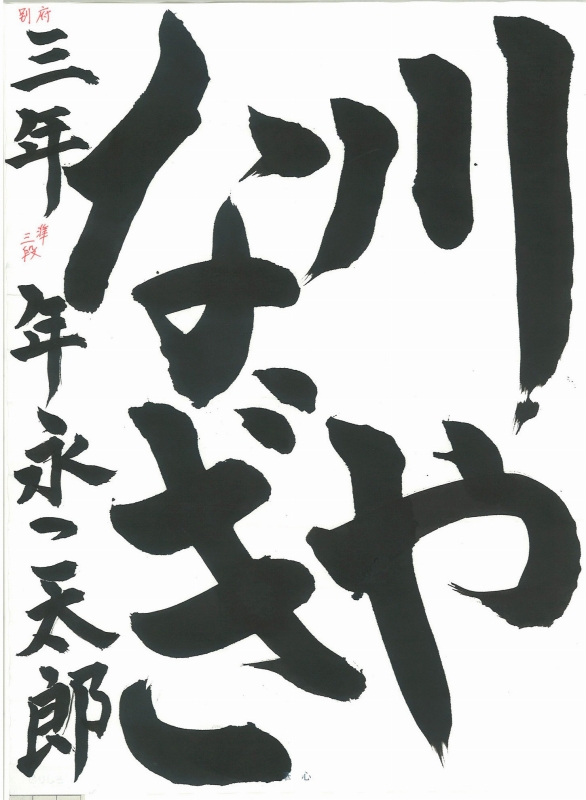 川や
なぎ
別府
三年
準三段
年永二太郎